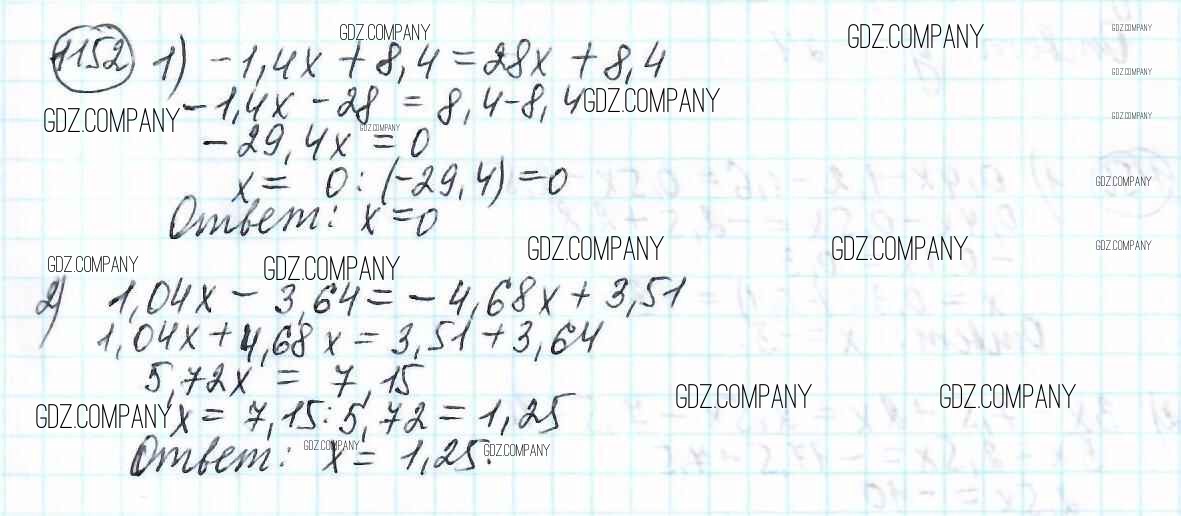 GDZ.COMPANY GDZ.COMPANY GDZ.COMPANY
1152 1) -1,4x + 8,4 = 28x + 8,4
GDZ.COMPANY
GDZ.COMPANY -1,4x - 28 = 8,4-8,4 GDZ.COMPANY GDZ.COMPANY
GDZ.COMPANY
-29,4x = 0
x = 0 : (-29,4) = 0 GDZ.COMPANY
Ответ: x = 0
GDZ.COMPANY GDZ.COMPANY GDZ.COMPANY
GDZ.COMPANY GDZ.COMPANY
2) 1,04x - 3,64 = - 4,68x + 3,51
1,04x + 4,68x = 3,51 + 3,64
5,72x = 7,15
GDZ.COMPANY GDZ.COMPANY
GDZ.COMPANY x = 7,15 : 5,72 = 1,25
Ответ: x = 1,25.
GDZ.COMPANY GDZ.COMPANY